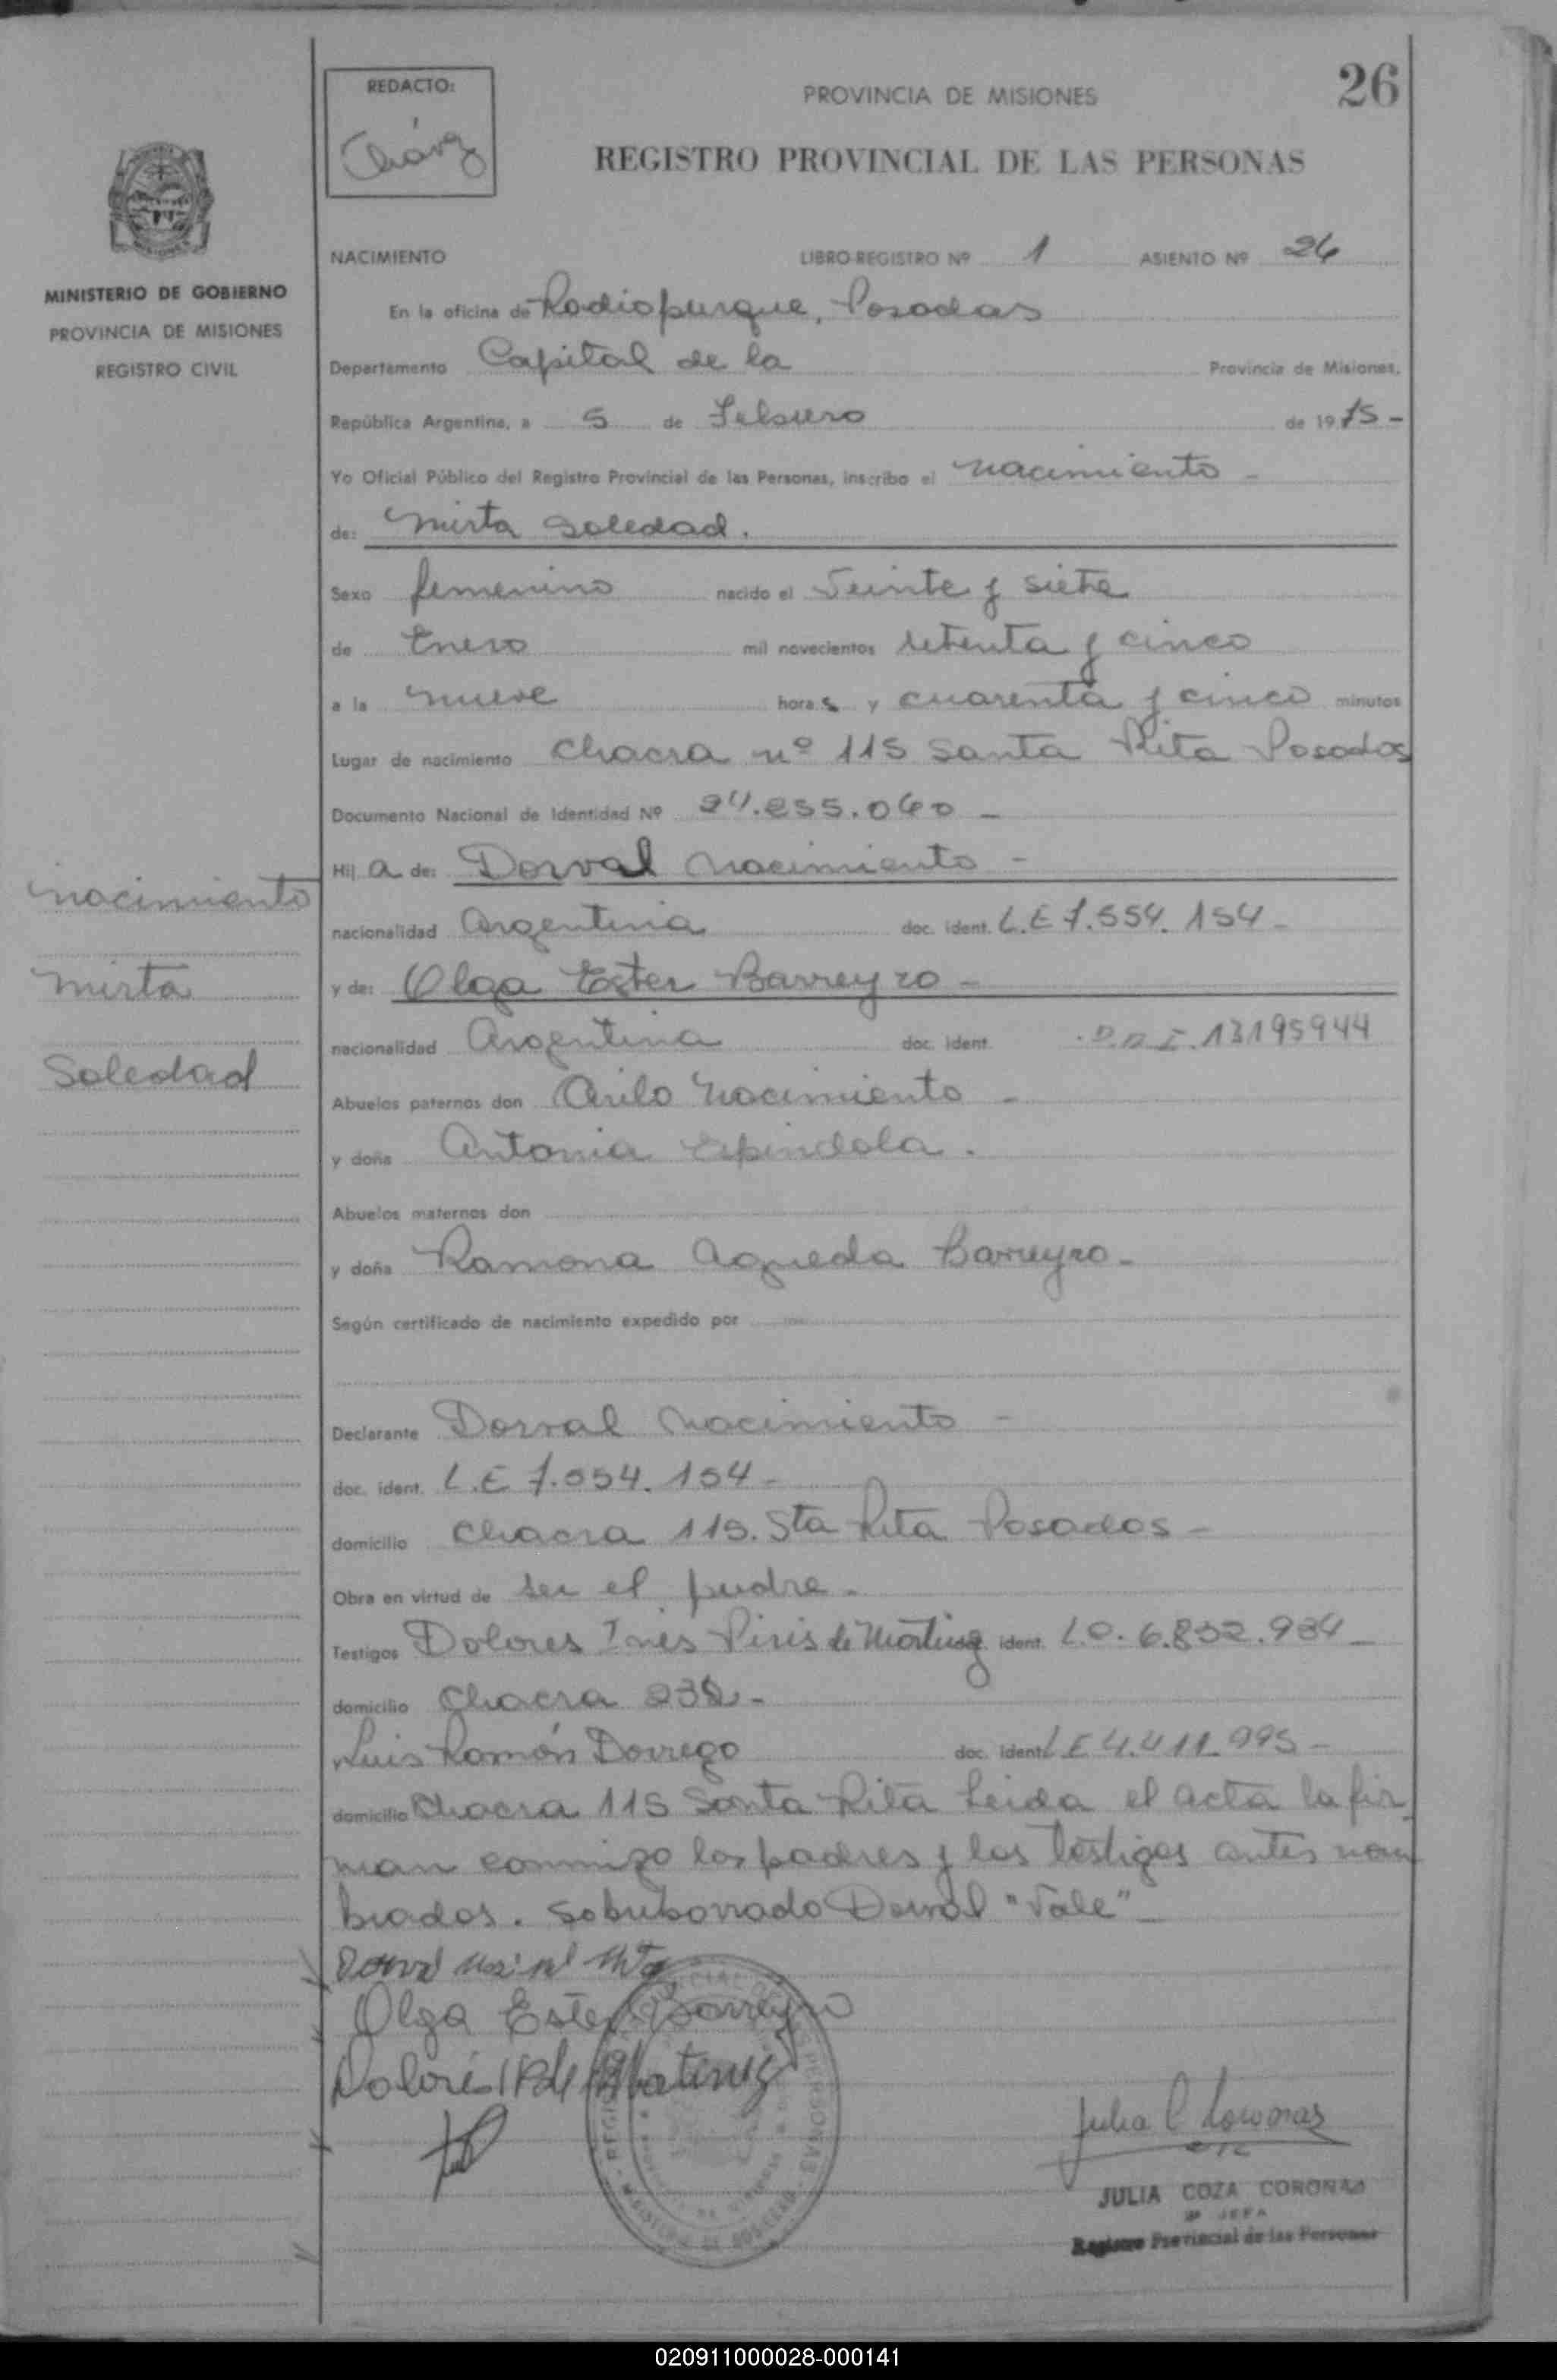 26
REDACTO:
Chávez
PROVINCIA DE MISIONES
REGISTRO PROVINCIAL DE LAS PERSONAS
MINISTERIO DE GOBIERNO
PROVINCIA DE MISIONES
REGISTRO CIVIL
NACIMIENTO LIBRO-REGISTRO Nº 1 ASIENTO Nº 26
En la oficina de Radioparque, Posadas
Departamento Capital de la Provincia de Misiones,
República Argentina, a 5 de Febrero de 1975-
Yo Oficial Público del Registro Provincial de las Personas, inscribo el nacimiento -
de: Mirta Soledad.
Sexo femenino nacido el Veinte y siete
de Enero mil novecientos setenta y cinco
a la nueve horas y cuarenta y cinco minutos
Lugar de nacimiento Chacra nº 115 Santa Rita Posadas
Documento Nacional de Identidad Nº 24.255.060 -
Hija de: Dorval Nacimiento -
nacionalidad Argentina doc. ident. L.E 7.554.154 -
y de: Olga Ester Barreyro -
nacionalidad Argentina doc. ident. D.N.I. 13195944
Abuelos paternos don Nacimiento -
y doña Antonia Espindola.
Abuelos maternos don
y doña Ramona Agueda Barreyro -
Según certificado de nacimiento expedido por
Declarante Dorval Nacimiento -
doc. ident. L.E 7.554.154 -
domicilio Chacra 115. Sta Rita Posadas -
Obra en virtud de ser el padre -
Testigos Dolores Ines Piris de Martinez ident. L.C. 6.832.984 -
domicilio Chacra 232 -
Luis Ramón Dorrego doc. ident. L E 4.411.995 -
domicilio Chacra 115 Santa Rita Leida el acta la fir
man conmigo los padres y los testigos antes nom
brados. Sobreborrado Dorval "Vale" -
Nacimiento
Mirta
Soledad
Olga Ester Barreyro
Dolores
JULIA COZA CORONAS
JEFA
Registro Provincial de las Personas
020911000028-000141